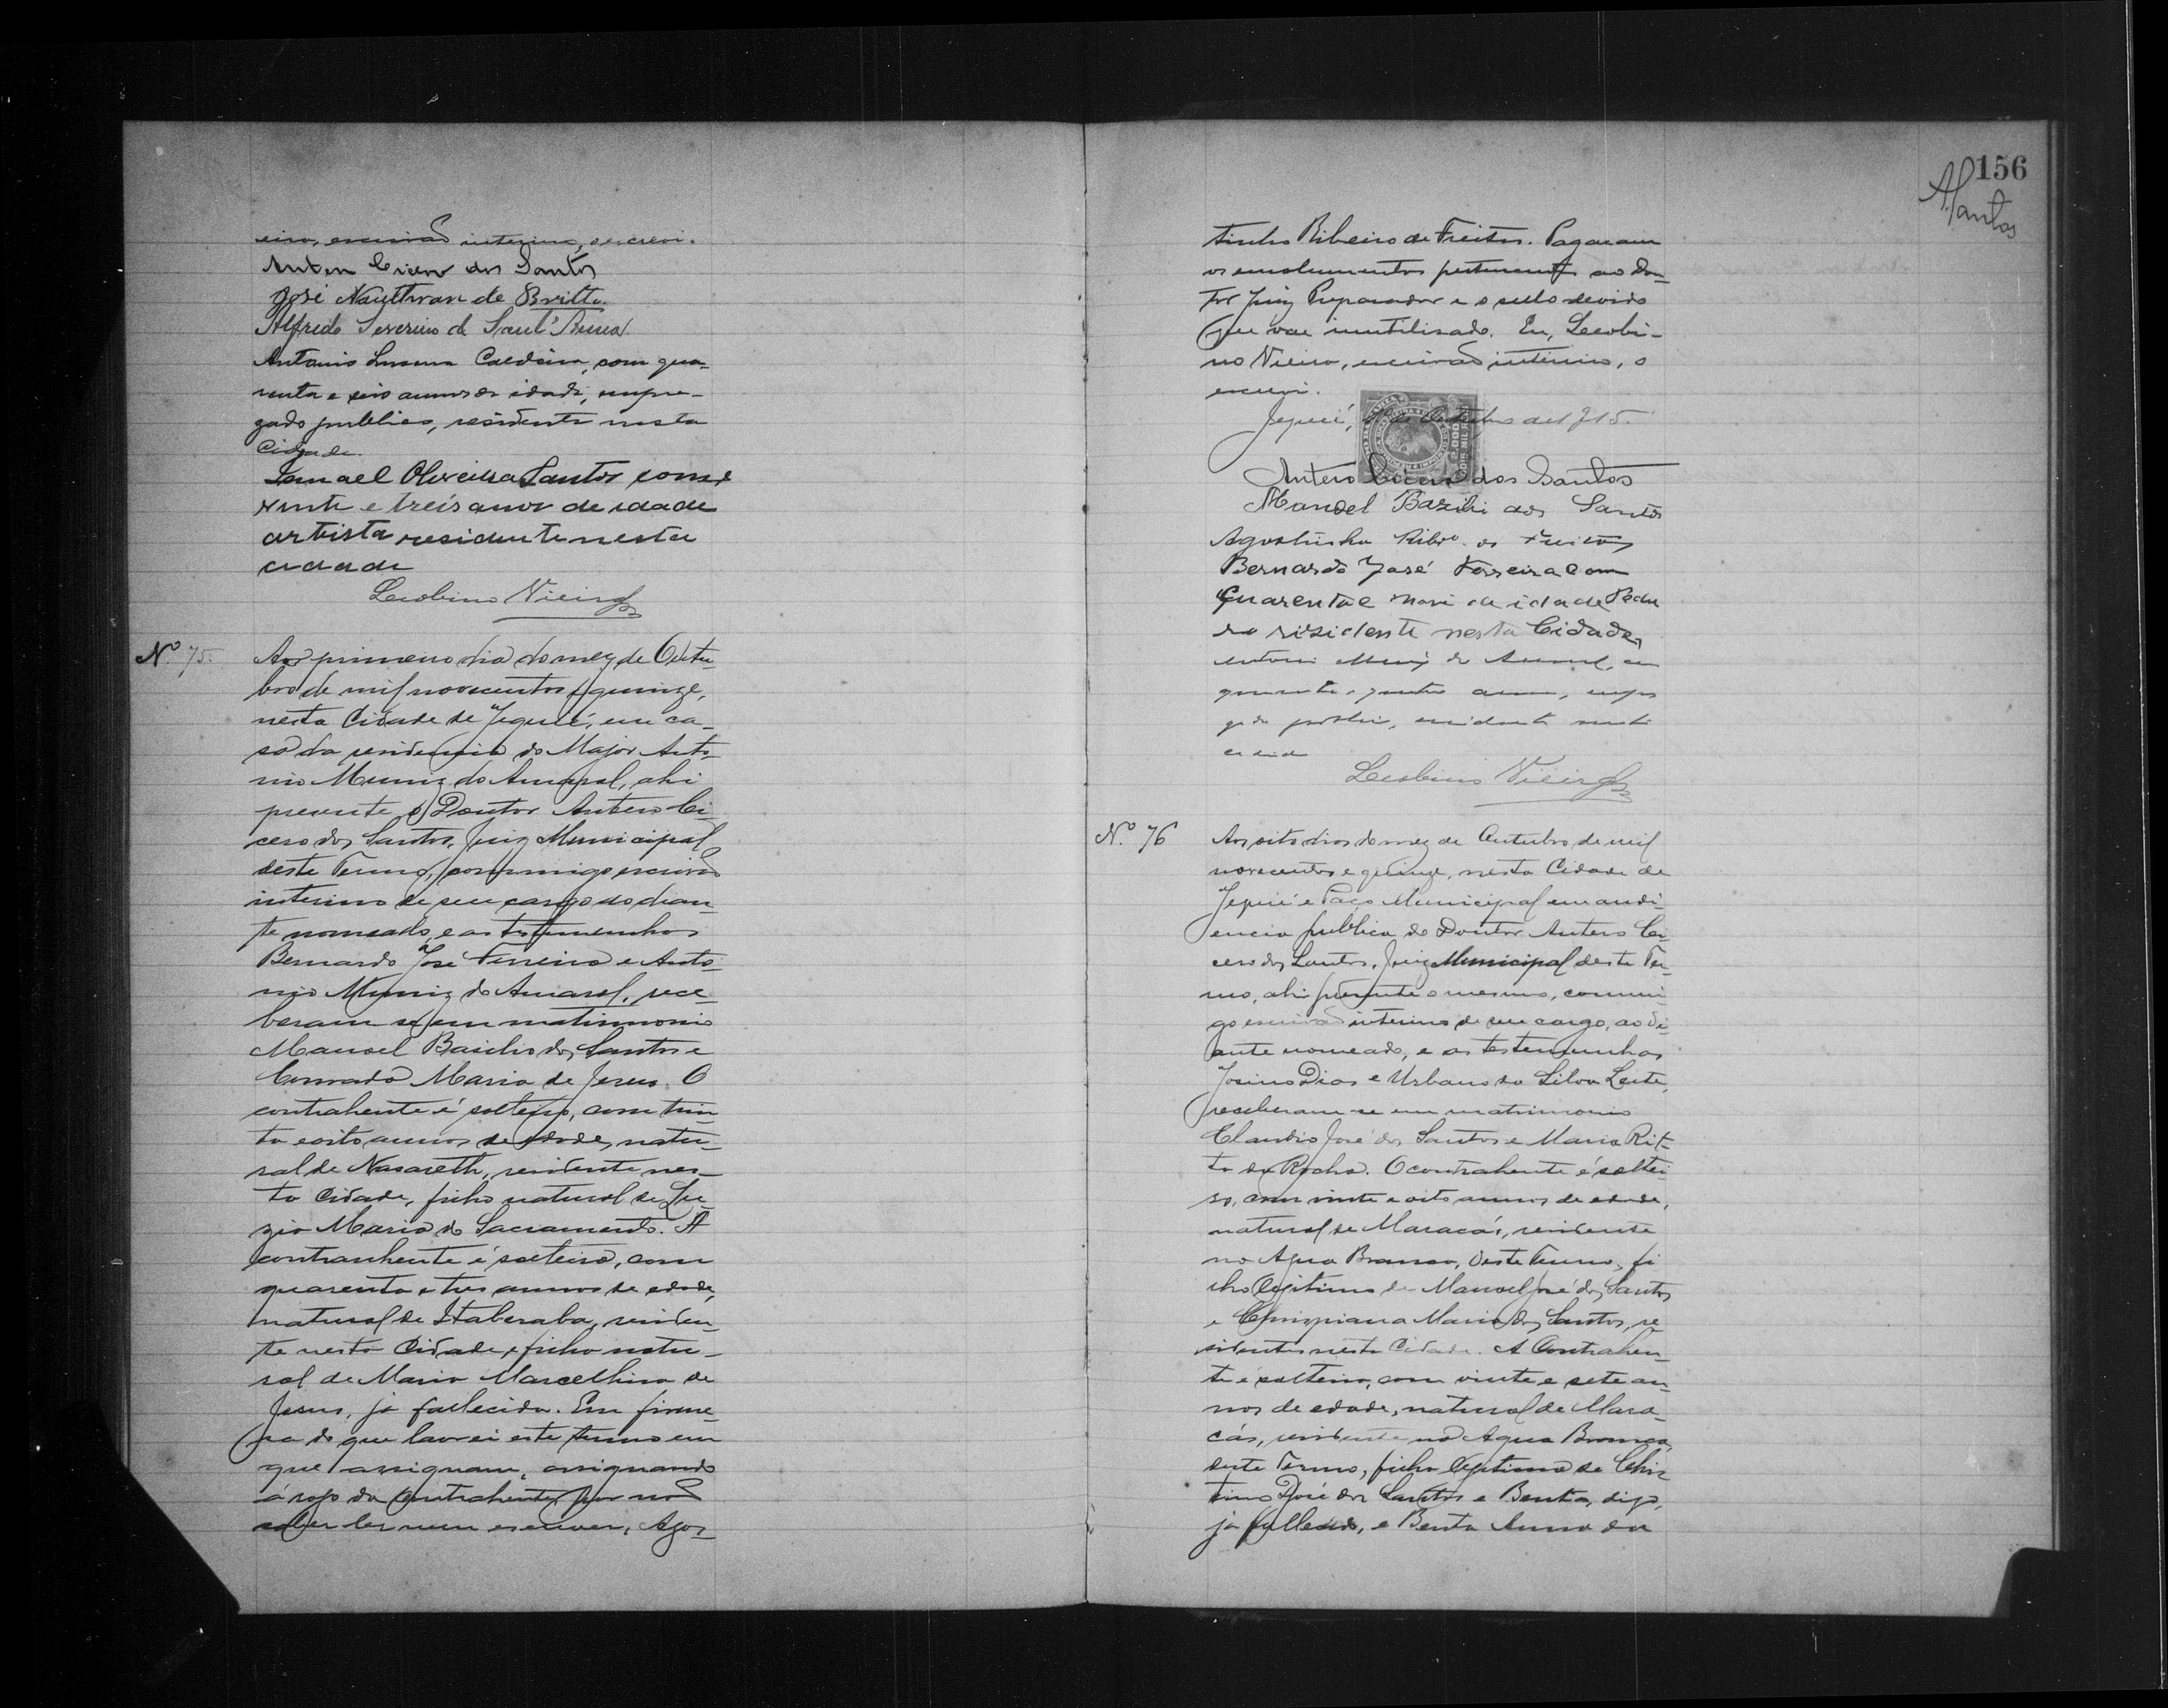 eira, escrivão interino, o escrevi.
Antero Cicero dos Santos
José Nautívan de Britto.
Alfredo Severino de Sant'Anna
Antonio Caldeira, com qua-
renta e seis annos de idade, empre-
gado publico, residente nesta
Cidade.
Ismael Oliveira Santos com
vinte e treis anos de idade
artista residente nesta
cidade
Leobino Vieira
Nº 75.
Aos primeiro dia do mez de Outu-
bro de mil novecentos e quinze,
nesta Cidade de Jequié, em ca-
sa da residencia do Major Anto-
nio Muniz do Amaral, ahi
presente o Doutor Antero Ci-
cero dos Santos, Juiz Municipal
deste Termo, commigo escrivão
interino de seu cargo ao dian-
te nomeado, e as testemunhas
Bernardo José Ferreira e Anto-
nio Muniz do Amaral, rece-
beram-se em matrimonio
Manoel Basilio dos Santos e
Conrada Maria de Jesus. O
contrahente é solteiro, com trin-
ta e oito annos de edade, natu-
ral de Nasareth, residente nes-
ta Cidade, filho natural de Lu-
zia Maria do Sacramento. A
contranhente é solteira, com
quarenta e tres annos de edade,
natural de Itaberaba, residen-
te nesta Cidade, e filha natu-
ral de Maria Marcellina de
Jesus, já fallecida. Em firme-
za do que lavrei este termo em
que assignam, assignando
á rogo da contrahente por não
saber ler nem escrever, Agos-
156
ASantos
tinho Ribeiro de Freitas. Pagaram
os emolumentos pertencentes ao Dou-
tor Juiz Preparador e o sello devido
que vae inutilisado. Eu, Leobi-
no Vieira, escrivão interino, o
escrevi.
Jequié, de Outubro de 1915.
Antero Cicero dos Santos
Manoel Bazilio dos Santos
Agostinho Ribro de Freitas
Bernardo José Ferreira com
quarenta e nove de idade Pedre
ro risidente nesta Cidade,
Antonio Muniz do Amaral, com
quarenta e quatro annos, empre
gado publico, residente nesta
cidade
Leobino Vieira
Nº 76
Aos oito dias do mez de Outubro de mil
novecentos e quinze, nesta Cidade de
Jequié e Paço Municipal em audi-
encia publica do Doutor Antero Ci-
cero dos Santos, Juiz Municipal deste Ter-
mo, ahi presente o mesmo, commi-
go escrivão interino de seu cargo, ao di-
ante nomeado, e as testemunhas
Josino Dias e Urbano da Silva Leite,
receberam-se em matrimonio
Claudio José dos Santos e Maria Rit-
ta da Rocha. O contrahente é soltei-
ro, com vinte e oito annos de edade,
natural de Maracás, residente
no Agua Branca, deste Termo, fi
lho legitimo de Manoel José dos Santos
e Chrispiana Maria dos Santos, re
sidentes nesta Cidade. A Contrahen-
te é solteira, com vinte e sete an-
nos de edade, natural de Mara-
cás, residente no Agua Branca,
deste Termo, filha legitima de
José dos Santos e Benta, digo,
já fallecido, e Benta Anna da